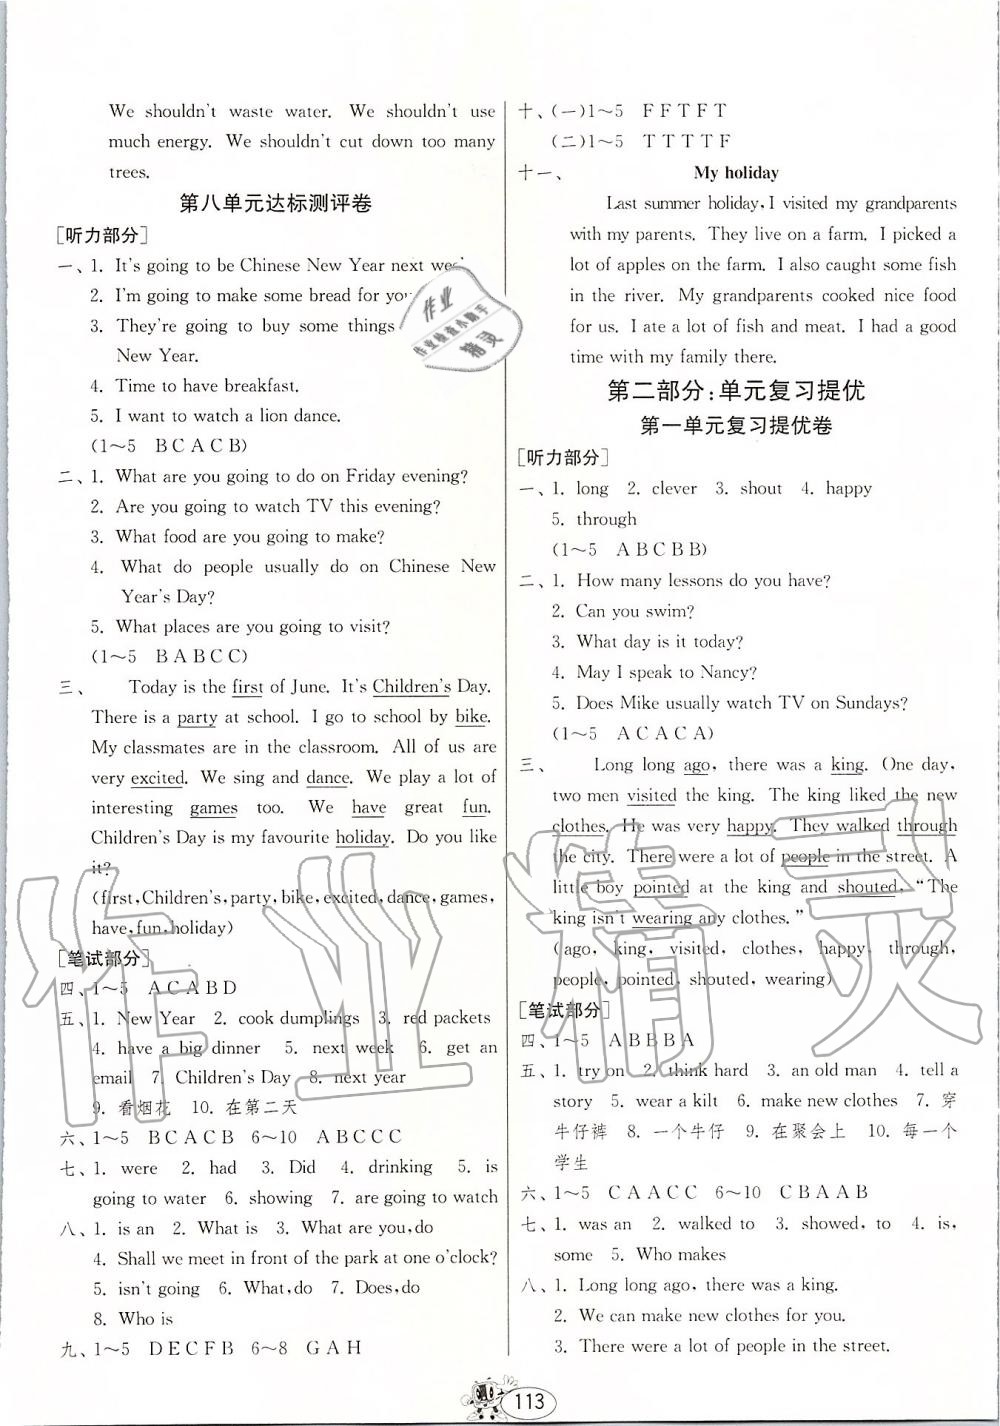 We shouldn't waste water. We shouldn't use
much energy. We shouldn't cut down too many
trees.
第八单元达标测评卷
[听力部分]
一、1. It's going to be Chinese New Year next
2. I'm going to make some bread for
3. They're going to buy some things
New Year.
4. Time to have breakfast.
5. I want to watch a lion dance.
(1～5 B C A C B)
二、1. What are you going to do on Friday evening?
2. Are you going to watch TV this evening?
3. What food are you going to make?
4. What do people usually do on Chinese New
Year's Day?
5. What places are you going to visit?
(1～5 B A B C C)
三、 Today is the first of June. It's Children's Day.
There is a party at school. I go to school by bike.
My classmates are in the classroom. All of us are
very excited. We sing and dance. We play a lot of
interesting games too. We have great fun.
Children's Day is my favourite holiday. Do you like
it?
(first,Children's,party,bike,excited,dance,games,
have,fun,holiday)
[笔试部分]
四、1～5 A C A B D
五、1. New Year 2. cook dumplings 3. red packets
4. have a big dinner 5. next week 6. get an
email 7. Children's Day 8. next year
9. 看烟花 10. 在第二天
六、1～5 B C A C B 6～10 A B C C C
七、1. were 2. had 3. Did 4. drinking 5. is
going to water 6. showing 7. are going to watch
八、1. is an 2. What is 3. What are you,do
4. Shall we meet in front of the park at one o'clock?
5. isn't going 6. What,do 7. Does,do
8. Who is
九、1～5 D E C F B 6～8 G A H
十、(一)1～5 F F T F T
(二)1～5 T T T T F
十一、 My holiday
Last summer holiday,I visited my grandparents
with my parents. They live on a farm. I picked a
lot of apples on the farm. I also caught some fish
in the river. My grandparents cooked nice food
for us. I ate a lot of fish and meat. I had a good
time with my family there.
第二部分:单元复习提优
第一单元复习提优卷
[听力部分]
一、1. long 2. clever 3. shout 4. happy
5. through
(1～5 A B C B B)
二、1. How many lessons do you have?
2. Can you swim?
3. What day is it today?
4. May I speak to Nancy?
5. Does Mike usually watch TV on Sundays?
(1～5 A C A C A)
三、 Long long ago, there was a king. One day,
two men visited the king. The king liked the new
clothes. He was very happy. They walked through
the city. There were a lot of people in the street. A
little boy pointed at the king and shouted, "The
king isn't wearing any clothes."
(ago, king, visited, clothes, happy, through,
people, pointed, shouted, wearing)
[笔试部分]
四、1～5 A B B B A
五、1. try on 2. think hard 3. an old man 4. tell a
story 5. wear a kilt 6. make new clothes 7. 穿
牛仔裤 8. 一个牛仔 9. 在聚会上 10. 每一个
学生
六、1～5 C A A C C 6～10 C B A A B
七、1. was an 2. walked to 3. showed,to 4. is,
some 5. Who makes
八、1. Long long ago, there was a king.
2. We can make new clothes for you.
3. There were a lot of people in the street.
作业
作业检查小助手
精灵
作业精灵
113